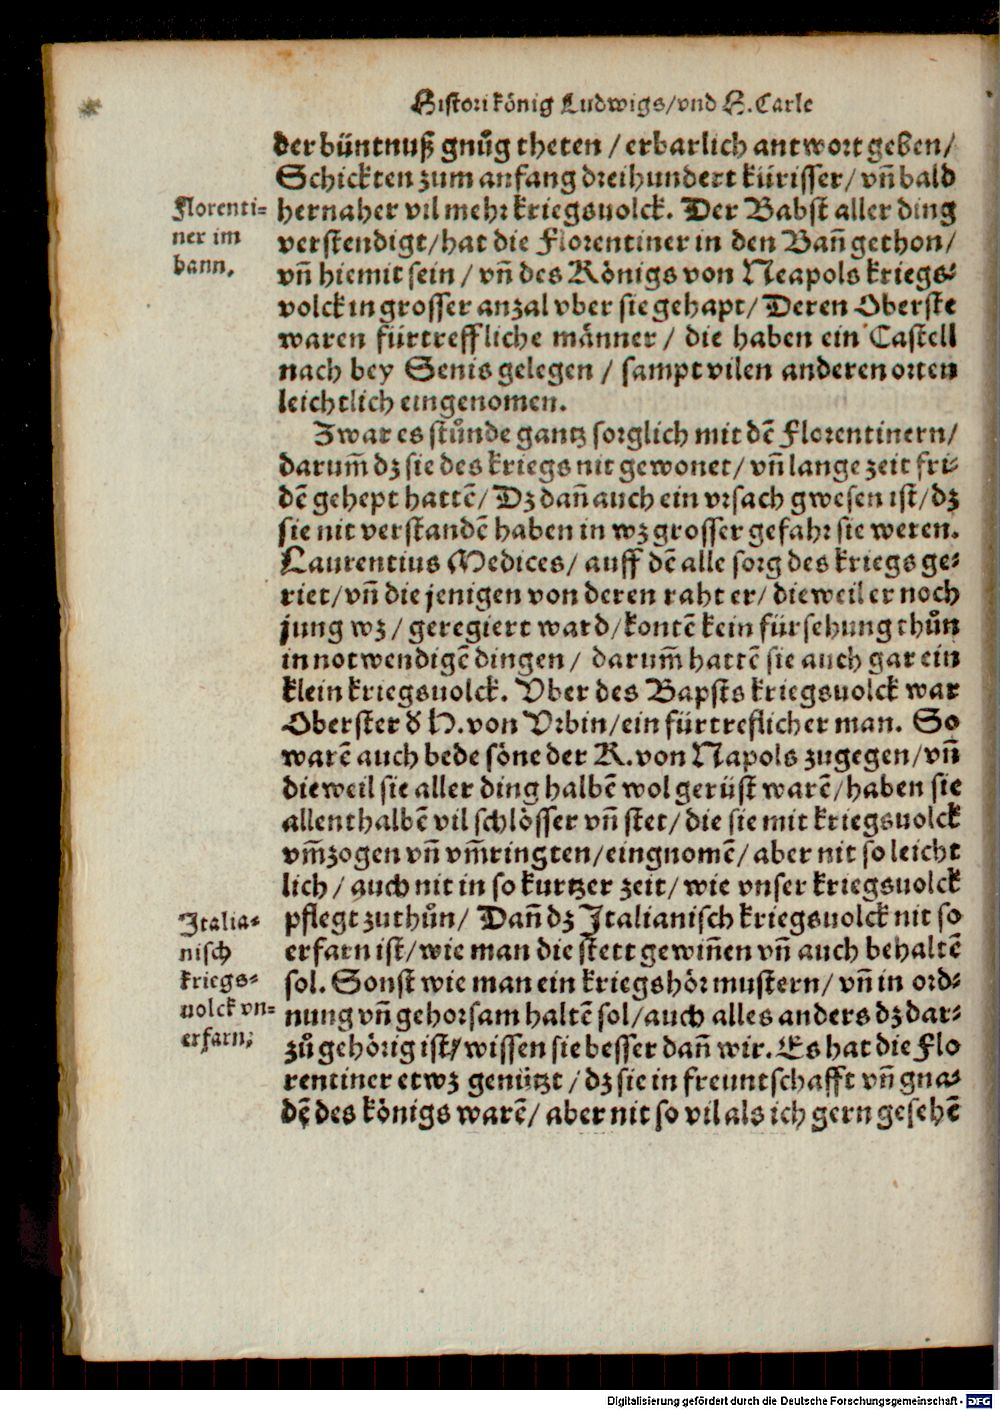 Histori König Ludwigs/vnd H. Carle
der büntnuß gnůg theten / erbarlich antwort geben/
Schickten zum anfang dreihundert kürisser/ vñ bald
hernaher vil mehr kriegsuolck. Der Babst aller ding
verstendigt/hat die Florentiner in den Bañ gethon/
vñ hiemit sein / vñ des Königs von Neapols kriegs-
volck in grosser anzal vber sie gehapt/ Deren Oberste
waren fürtreffliche männer / die haben ein Castell
nach bey Senis gelegen / sampt vilen anderen orten
leichtlich eingenomen.
Florenti-
ner im
bann.
Zwar es stůnde gantz sorglich mit dẽ Florentinern/
darum̃ dz sie des kriegs nit gewonet/ vñ lange zeit fri-
dẽ gehept hattẽ/ Dz dañ auch ein vrsach gwesen ist/dz
sie nit verstandẽ haben in wz grosser gefahr sie weren.
Laurentius Medices/ auff dẽ alle sorg des kriegs ge-
riet/vñ die jenigen von deren raht er/ dieweil er noch
jung wz / geregiert ward/kontẽ kein fürsehung thůn
in notwendigẽ dingen / darum̃ hattẽ sie auch gar ein
klein kriegsuolck. Vber des Bapsts kriegsuolck war
Oberster d̕ H. von Vrbin/ein fürtreflicher man. So
warẽ auch bede söne der K. von Napols zugegen/vñ
dieweil sie aller ding halbẽ wol gerüst warẽ/haben sie
allenthalbẽ vil schlösser vñ stet/ die sie mit kriegsuolck
vm̃zogen vñ vm̃ringten/eingnomẽ/ aber nit so leicht
lich / auch nit in so kurtzer zeit/ wie vnser kriegsuolck
pflegt zuthůn/ Dañ dz Italianisch kriegsuolck nit so
erfarn ist/ wie man die stett gewiñen vñ auch behaltẽ
sol. Sonst wie man ein kriegshör mustern/ vñ in ord-
nung vñ gehorsam haltẽ sol/auch alles anders dz dar-
zů gehörig ist/ wissen sie besser dañ wir. Es hat die Flo
rentiner etwz genützt / dz sie in freuntschafft vñ gna-
dẽ des königs warẽ/ aber nit so vil als ich gern gesehẽ
Italia-
nisch
kriegs-
uolck vn-
erfarn.
Digitalisierung gefördert durch die Deutsche Forschungsgemeinschaft - DFG